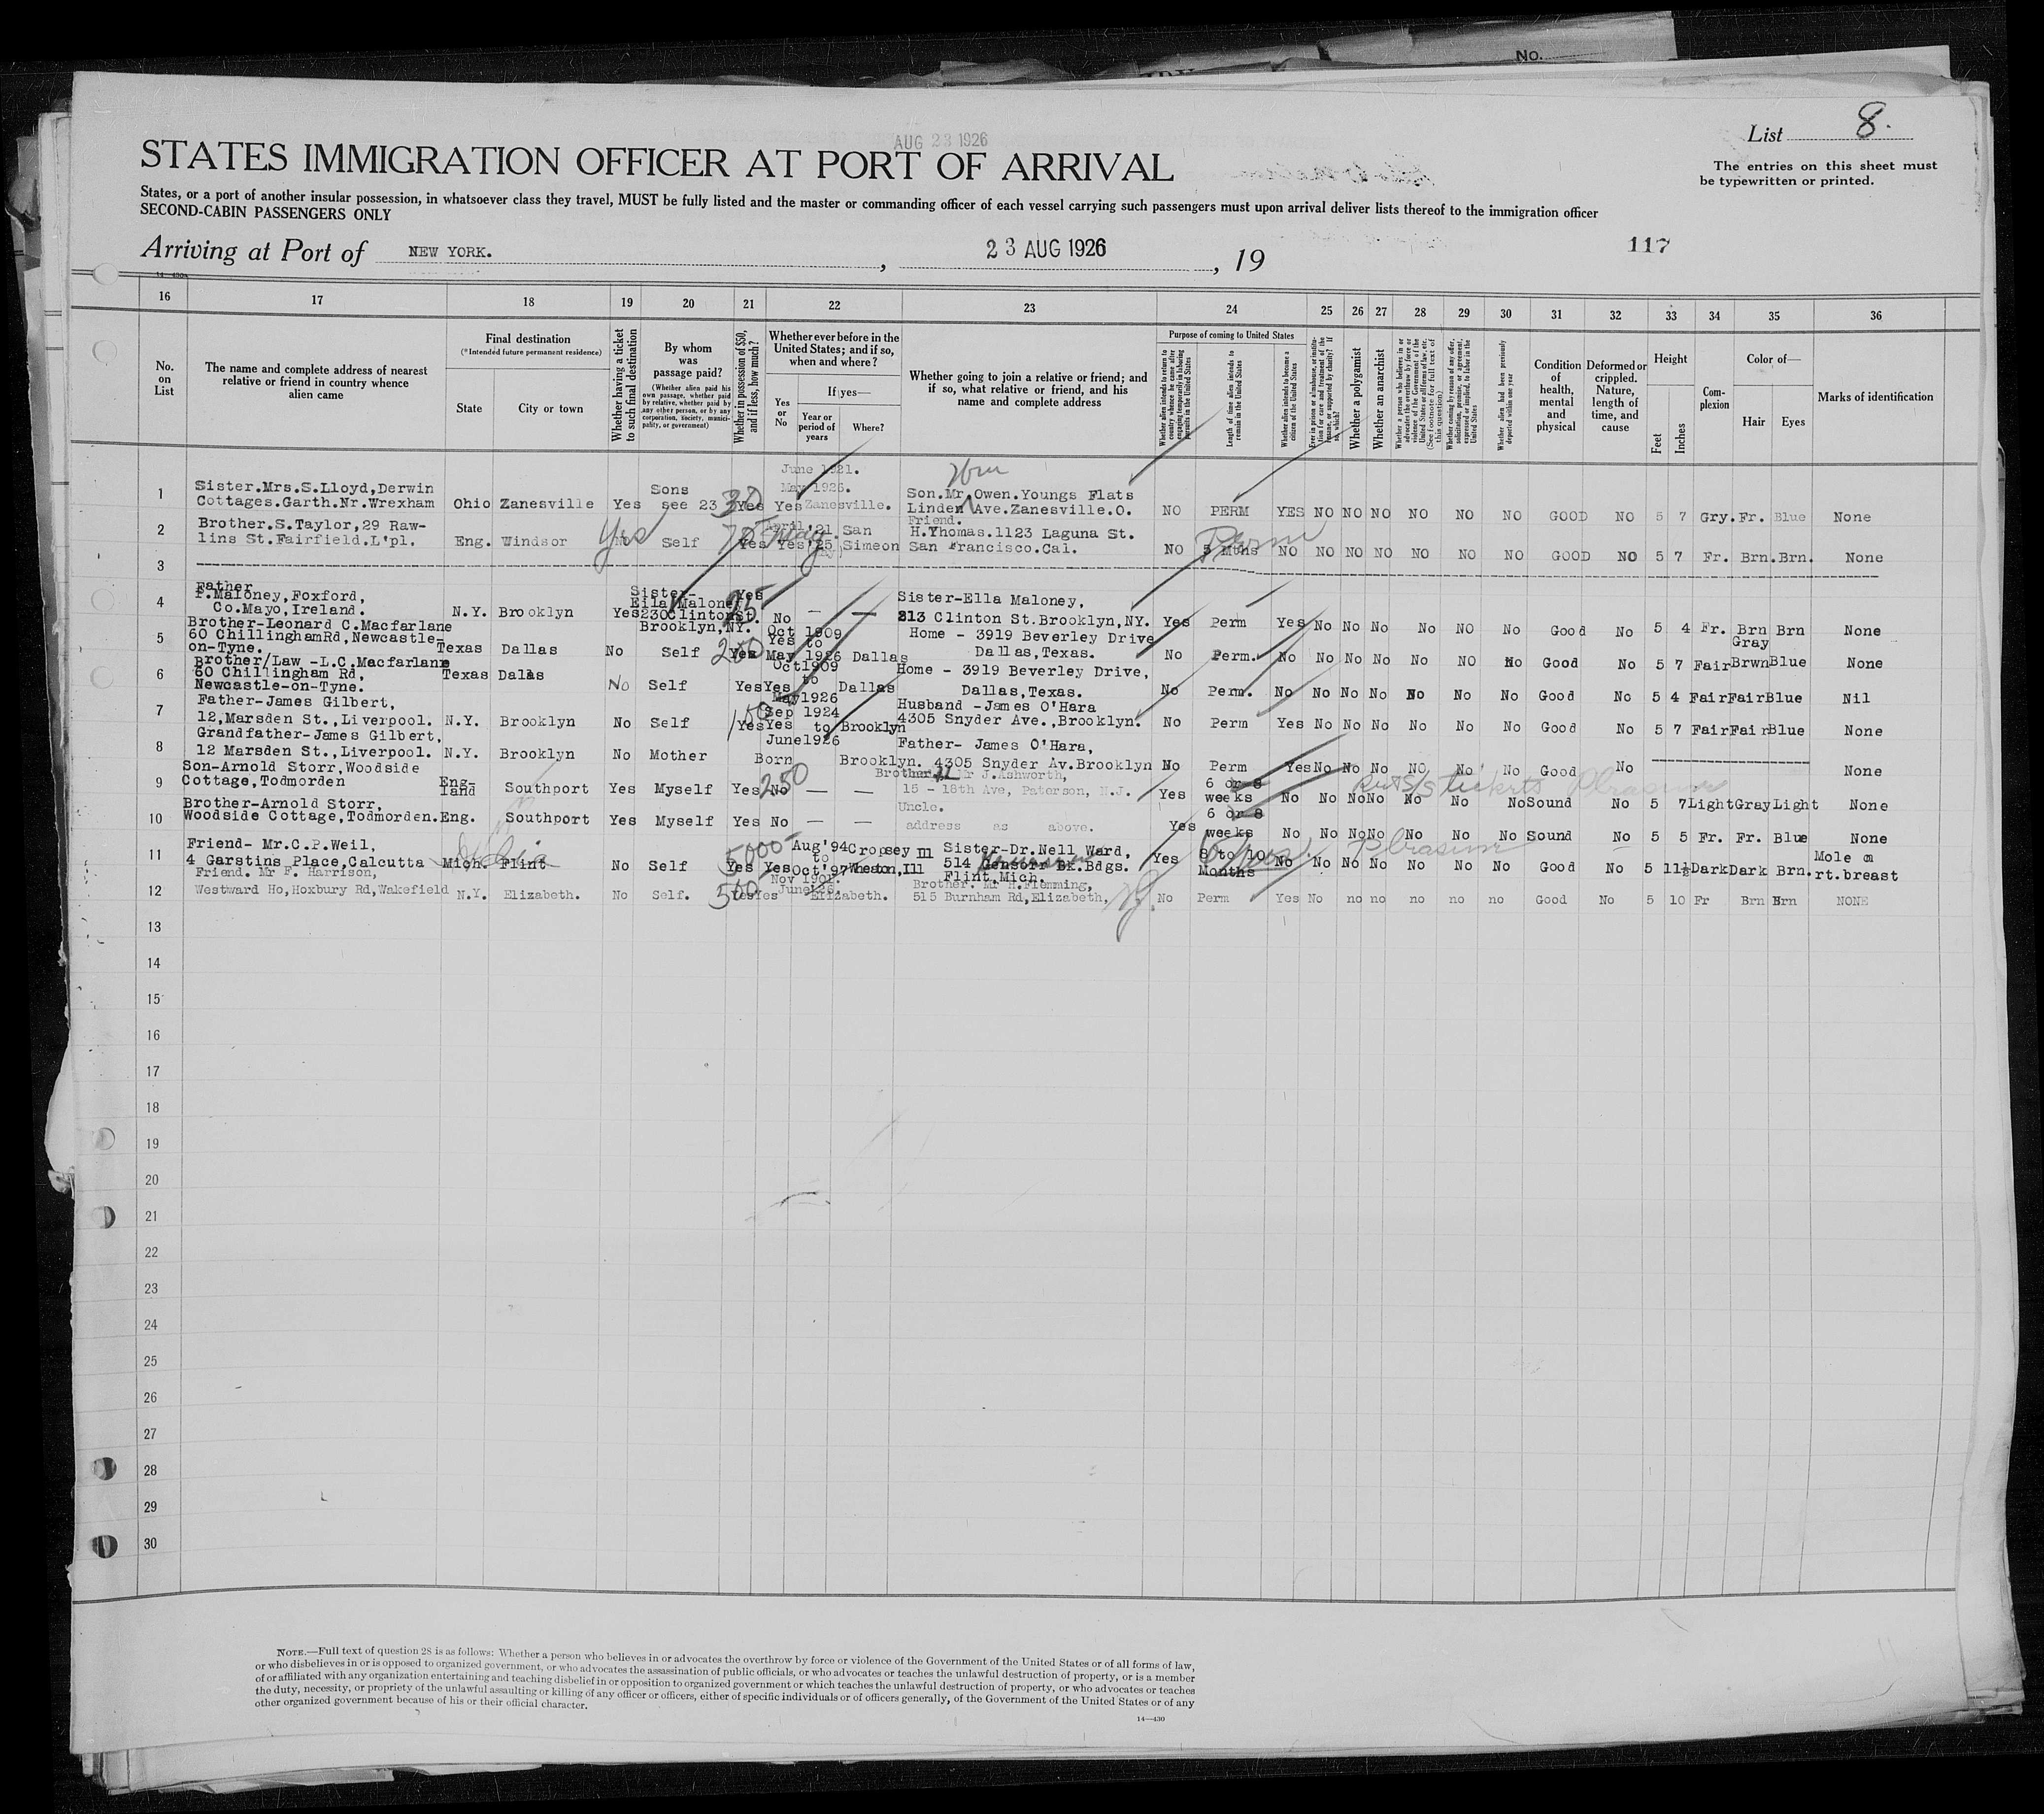 No.
AUG 23 1926
List 8.
STATES IMMIGRATION OFFICER AT PORT OF ARRIVAL
The entries on this sheet must
be typewritten or printed.
States, or a port of another insular possession, in whatsoever class they travel, MUST be fully listed and the master or commanding officer of each vessel carrying such passengers must upon arrival deliver lists thereof to the immigration officer
SECOND-CABIN PASSENGERS ONLY
Arriving at Port of NEW YORK. , 23 AUG 1926 , 19
117
16 17 18 19 20 21 22 23 24 25 26 27 28 29 30 31 32 33 34 35 36
No. on List
The name and complete address of nearest relative or friend in country whence alien came
Final destination
(*Intended future permanent residence)
State
City or town
Whether having a ticket to such final destination
By whom was passage paid?
(Whether alien paid his own passage, whether paid by relative, whether paid by any other person, or by any corporation, society, municipality, or government)
Whether in possession of $50, and if less, how much?
Whether ever before in the United States; and if so, when and where?
If yes—
Yes or No
Year or period of years
Where?
Whether going to join a relative or friend; and if so, what relative or friend, and his name and complete address
Purpose of coming to United States
Whether alien intends to return to country whence he came after engaging temporarily in laboring pursuits in the United States
Length of time alien intends to remain in the United States
Whether alien intends to become a citizen of the United States
Ever in prison or almshouse, or institution for care and treatment of the insane, or supported by charity? If so, which?
Whether a polygamist
Whether an anarchist
Whether a person who believes in or advocates the overthrow by force or violence of the Government of the United States or all forms of law, etc. (See footnote for full text of this question.)
Whether coming by reason of any offer, solicitation, promise, or agreement, expressed or implied, to labor in the United States
Whether alien had been previously deported within one year
Condition of health, mental and physical
Deformed or crippled. Nature, length of time, and cause
Height
Feet
Inches
Complexion
Color of—
Hair
Eyes
Marks of identification
June 1921. Wm
1 Sister.Mrs.S.Lloyd,Derwin Sons May 1926. Son.Mr Owen.Youngs Flats
Cottages.Garth.Nr.Wrexham Ohio Zanesville Yes see 23 30 Yes Yes Zanesville. Linden Ave.Zanesville.O. NO PERM YES NO NO NO NO NO NO GOOD NO 5 7 Gry. Fr. Blue None
2 Brother.S.Taylor,29 Raw- Yes April '21. San Friend. H.Yhomas.1123 Laguna St.
lins St.Fairfield.L'pl. Eng. Windsor Self Yes Yes '25 Simeon San Francisco.Cal. NO 5 Mths Perm NO NO NO NO NO NO NO GOOD NO 5 7 Fr. Brn. Brn. None
3
4 Father
P.Maloney,Foxford, Sister- Yes Sister-Ella Maloney,
Co.Mayo,Ireland. N.Y. Brooklyn Yes Ella Maloney 230 Clinton St. Brooklyn,NY. No — — 213 Clinton St.Brooklyn,NY. Yes Perm Yes No No No No NO No Good No 5 4 Fr. Brn Brn None
5 Brother-Leonard C.Macfarlane
60 ChillinghamRd,Newcastle- Oct 1909 Home - 3919 Beverley Drive
on-Tyne. Texas Dallas No Self 250 Yes Yes to May 1926 Dallas Dallas,Texas. No Perm. No No No No No NO No Good No 5 7 Fair Gray Brwn Blue None
6 Brother/Law -L.C.Macfarlane
60 Chillingham Rd, Texas Dalas Oct1909 Home - 3919 Beverley Drive,
Newcastle-on-Tyne. No Self Yes Yes to May1926 Dallas Dallas,Texas. No Perm. No No No No No No No Good No 5 4 Fair Fair Blue Nil
7 Father-James Gilbert, Sep 1924 Husband -James O'Hara
12,Marsden St.,Liverpool. N.Y. Brooklyn No Self 150 Yes Yes to June1926 Brooklyn 4305 Snyder Ave.,Brooklyn. No Perm Yes No No No No No No Good No 5 7 Fair Fair Blue None
8 Grandfather-James Gilbert, Father- James O'Hara,
12 Marsden St.,Liverpool. N.Y. Brooklyn No Mother Born Brooklyn. 4305 Snyder Av.Brooklyn No Perm Yes No No No NO No No Good No None
9 Son-Arnold Storr,Woodside Brother Mr J.Ashworth, 6 or 8
Cottage,Todmorden Eng-land Southport Yes Myself Yes 250 No — — 15 - 18th Ave, Paterson, N.J. Yes weeks No No No No No No No Sound No 5 7 Light Gray Light None
10 Brother-Arnold Storr, Uncle. 6 or 8
Woodside Cottage,Todmorden. Eng. Southport Yes Myself Yes No — — address as above. Yes weeks No No No No No No No Sound No 5 5 Fr. Fr. Blue None
11 Friend- Mr.C.P.Weil, 5000 Aug'94 Cropsey Ill Sister-Dr.Nell Ward,
4 Garstins Place,Calcutta Mich. Flint No Self Yes Yes to Oct'97 Weston,Ill 514 Bk.Bdgs. Flint,Mich. Yes 8 to 10 Months 6 mos No No No No No No No Good No 5 11½ Dark Dark Brn. Mole on rt.breast
12 Friend. Mr F. Harrison, Nov 1901. Brother. Mr H.Flemming,
Westward Ho,Hoxbury Rd,Wakefield N.Y. Elizabeth. No Self. 500 Yes Yes June Elizabeth. 515 Burnham Rd,Elizabeth, No Perm Yes No no no no no no Good No 5 10 Fr Brn Brn NONE
13
14
15
16
17
18
19
20
21
22
23
24
25
26
27
28
29
30
NOTE.—Full text of question 28 is as follows: Whether a person who believes in or advocates the overthrow by force or violence of the Government of the United States or of all forms of law,
or who disbelieves in or is opposed to organized government, or who advocates the assassination of public officials, or who advocates or teaches the unlawful destruction of property, or is a member
of or affiliated with any organization entertaining and teaching disbelief in or opposition to organized government or which teaches the unlawful destruction of property, or who advocates or teaches
the duty, necessity, or propriety of the unlawful assaulting or killing of any officer or officers, either of specific individuals or of officers generally, of the Government of the United States or of any
other organized government because of his or their official character.
14—430